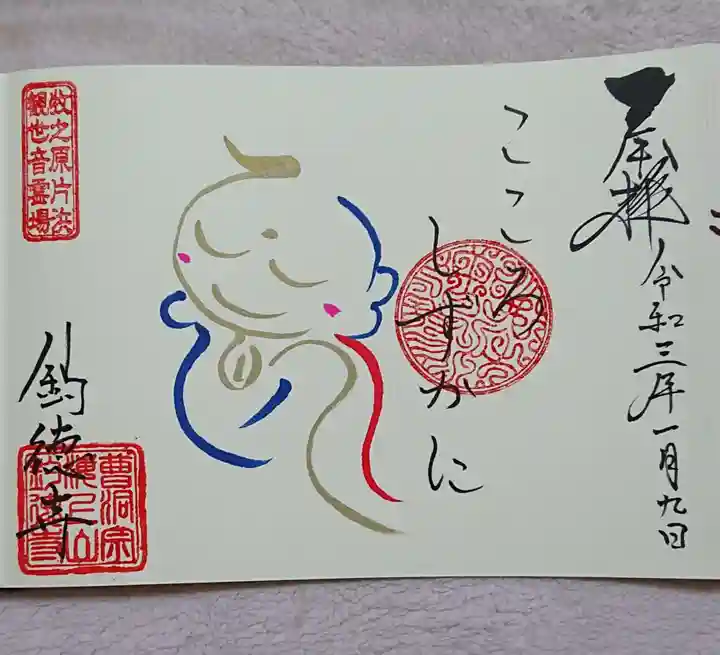 奉拝
令和三年一月九日
こころ
しずかに
牧之原片浜
観世音霊場
釣徳寺
曹洞宗